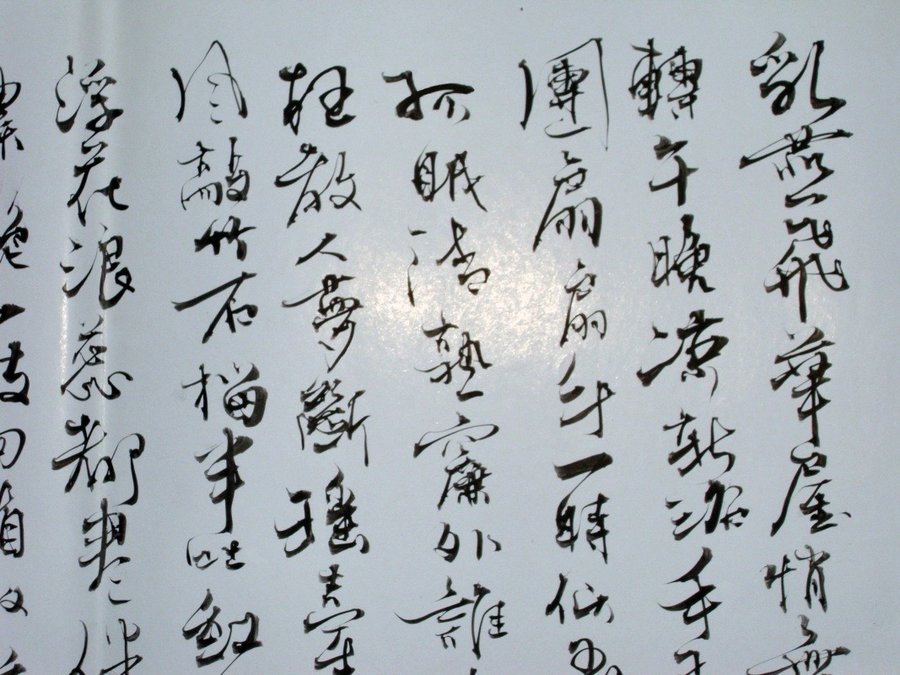 乳燕飛華屋悄無
轉午晚涼新浴手
團扇扇手一時似玉
孤眠清熟簾外誰
枉教人夢斷瑤臺
風敲竹石榴半吐紅
浮花浪蕊都盡伴
一枝細看取